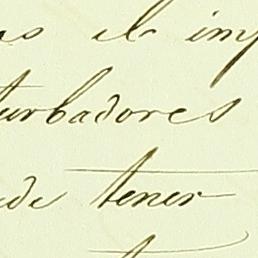 as el imp
turbadores
ede tener